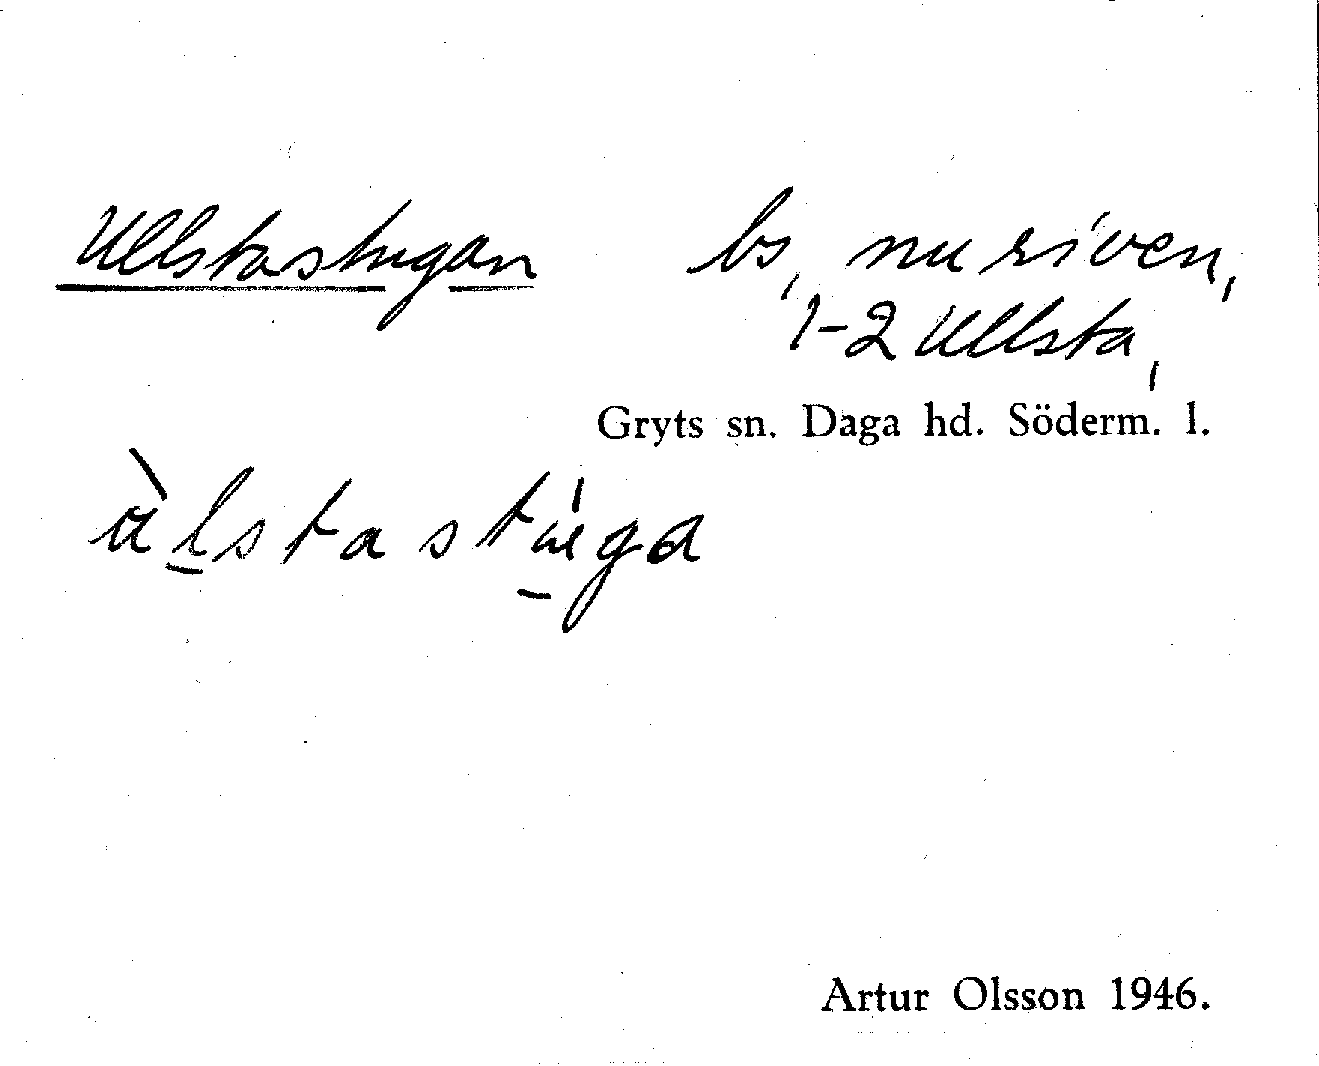 Ullstastugan bs, nu riven,
1-2 Ullsta,
Gryts sn. Daga hd. Söderm. l.
ùlstastúga
Artur Olsson 1946.